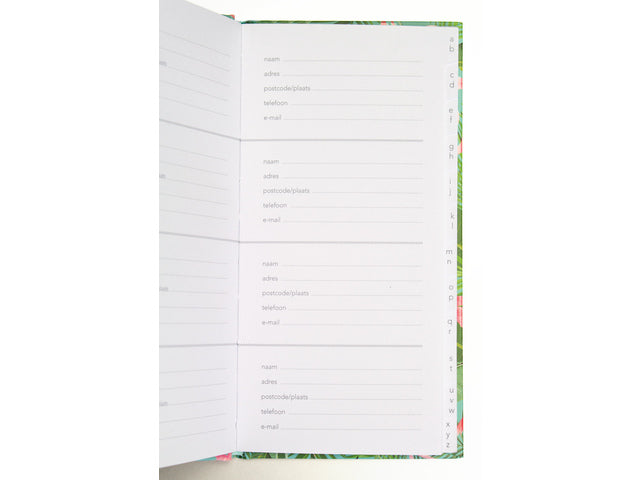 naam
adres
postcode/plaats
telefoon
e-mail
naam
adres
postcode/plaats
telefoon
e-mail
naam
adres
postcode/plaats
telefoon
e-mail
naam
adres
postcode/plaats
telefoon
e-mail
a
b
c
d
e
f
g
h
i
j
k
l
m
n
o
p
q
r
s
t
u
v
w
x
y
z